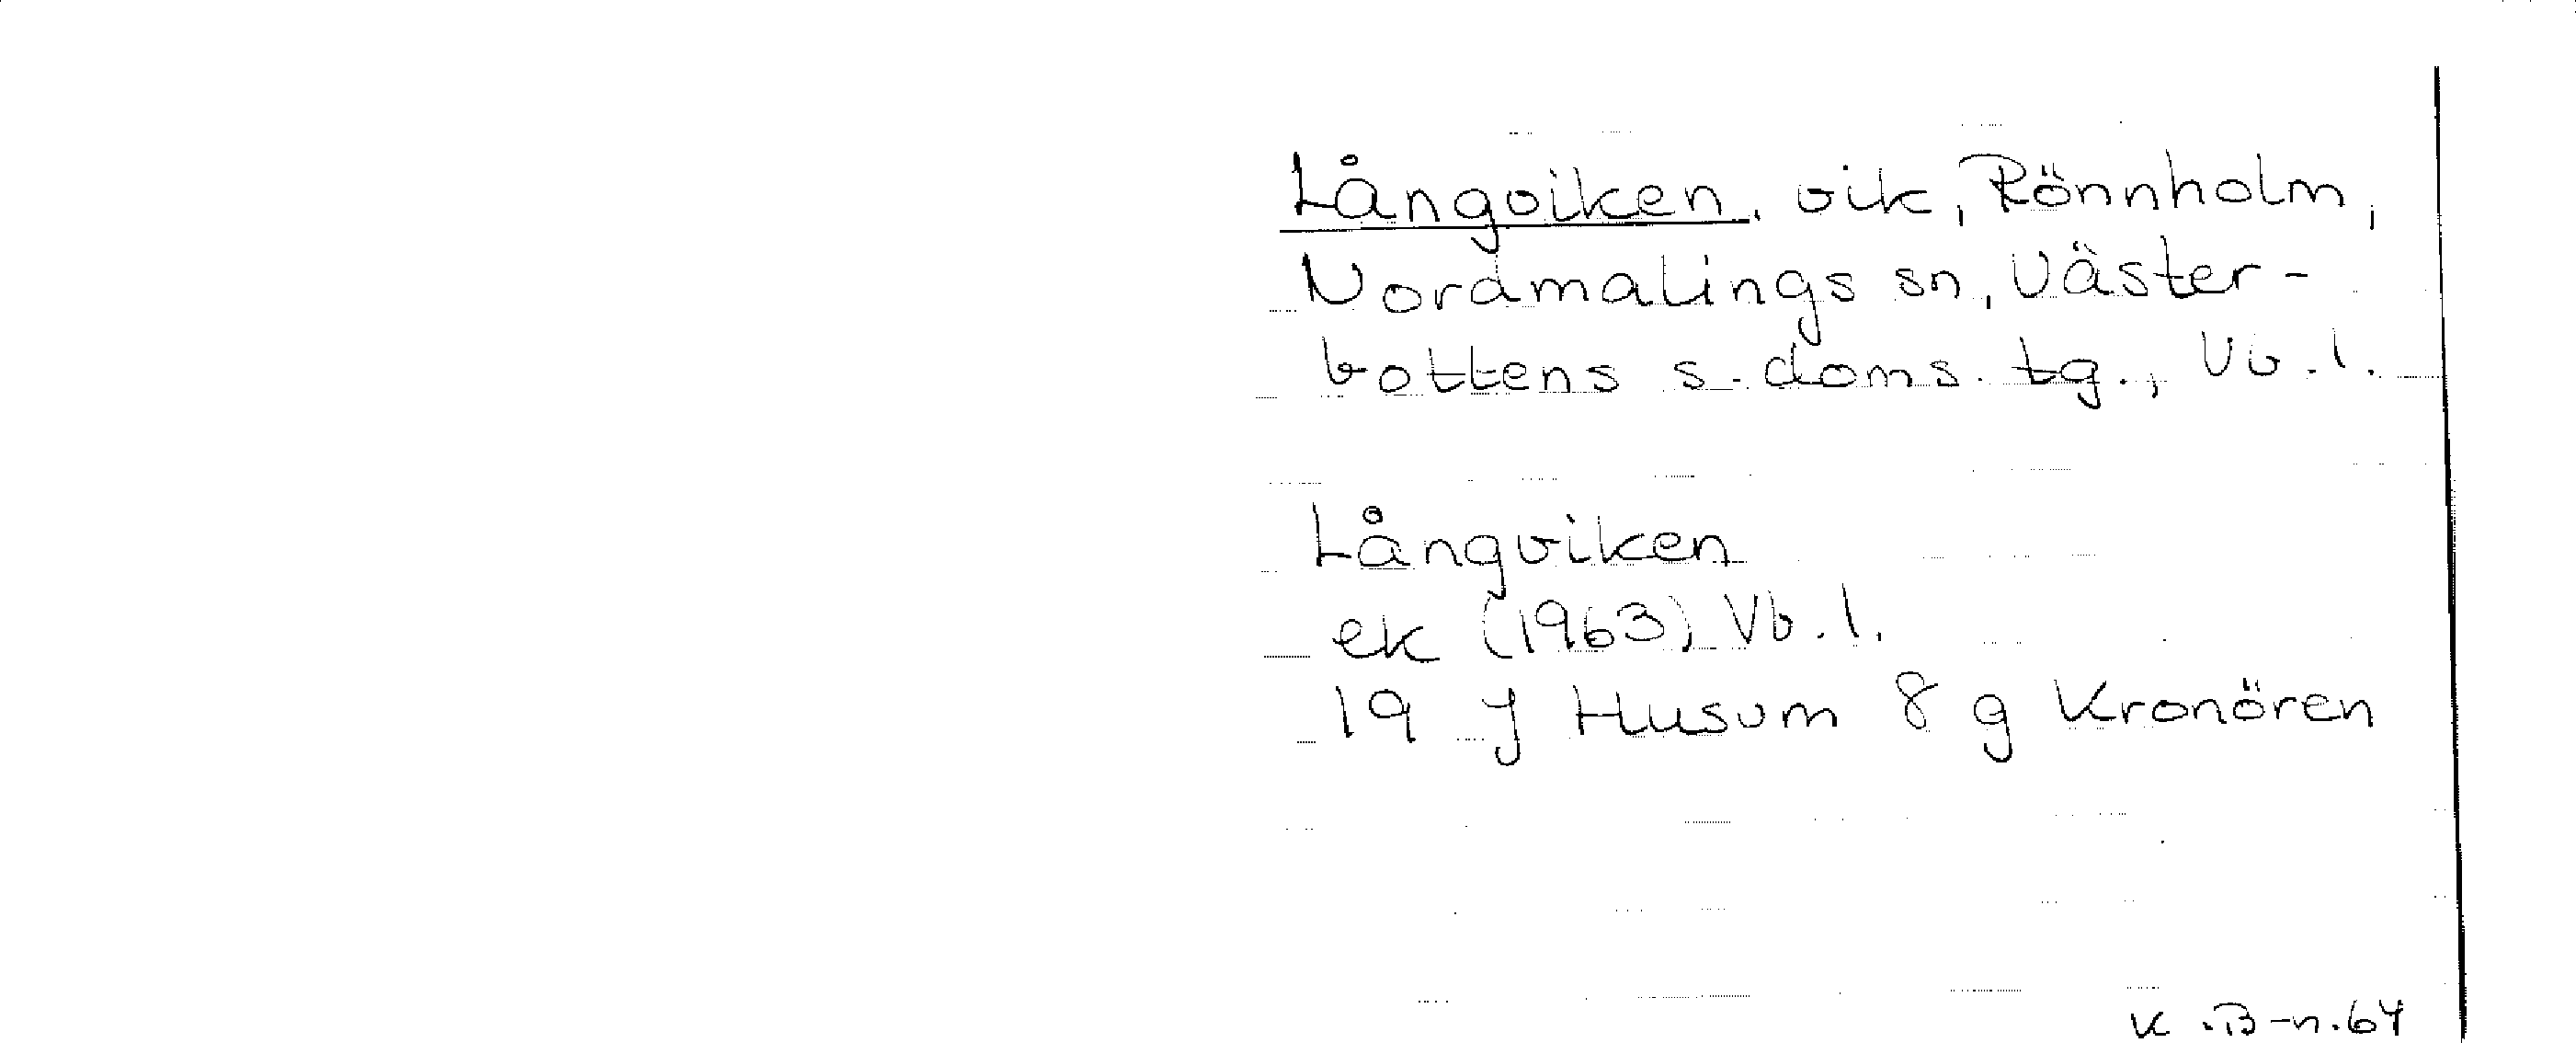 Långviken, vik, Rönnholm,
Nordmalings sn, Väster-
bottens s. doms. tg., Vb. l.
Långviken
ek (1963) Vb. l.
19 J Husum 8 g Kronören
K. B-n. 64